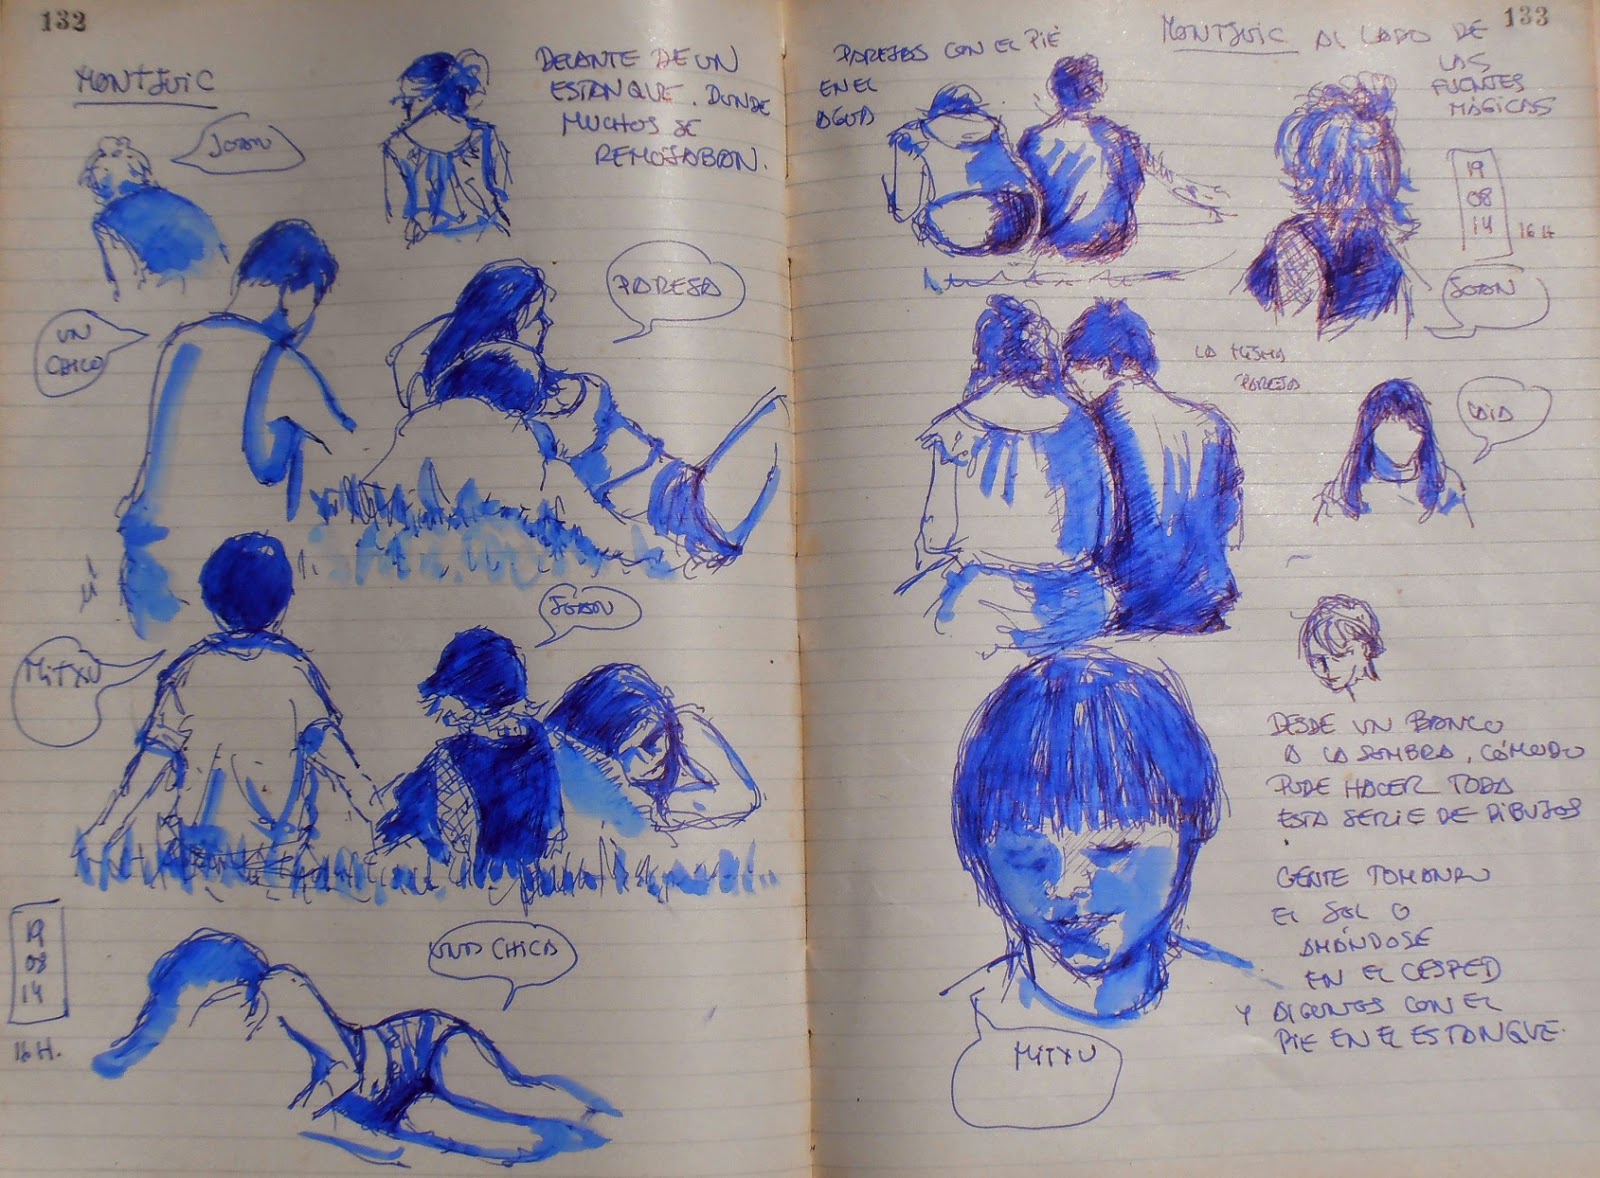 132
MONTJUIC
JOAN
DELANTE DE UN
ESTANQUE. DONDE
MUCHOS SE
REMOJABAN.
UN
CHICO
PAREJA
MITXU
JOAN
19
08
14
16 H.
UNA CHICA
133
PAREJAS CON EL PIÉ
EN EL
AGUA
MONTJUIC AL LADO DE
LAS
FUENTES
MÁGICAS
19
08
14
16 H.
JOAN
LA MISMA
PAREJA
LAIA
DESDE UN BANCO
A LA SOMBRA, CÓMODO
PUDE HACER TODA
ESTA SERIE DE DIBUJOS
GENTE TOMANDO
EL SOL O
AMÁNDOSE
EN EL CESPED
Y ALGUNOS CON EL
PIE EN EL ESTANQUE.
MITXU